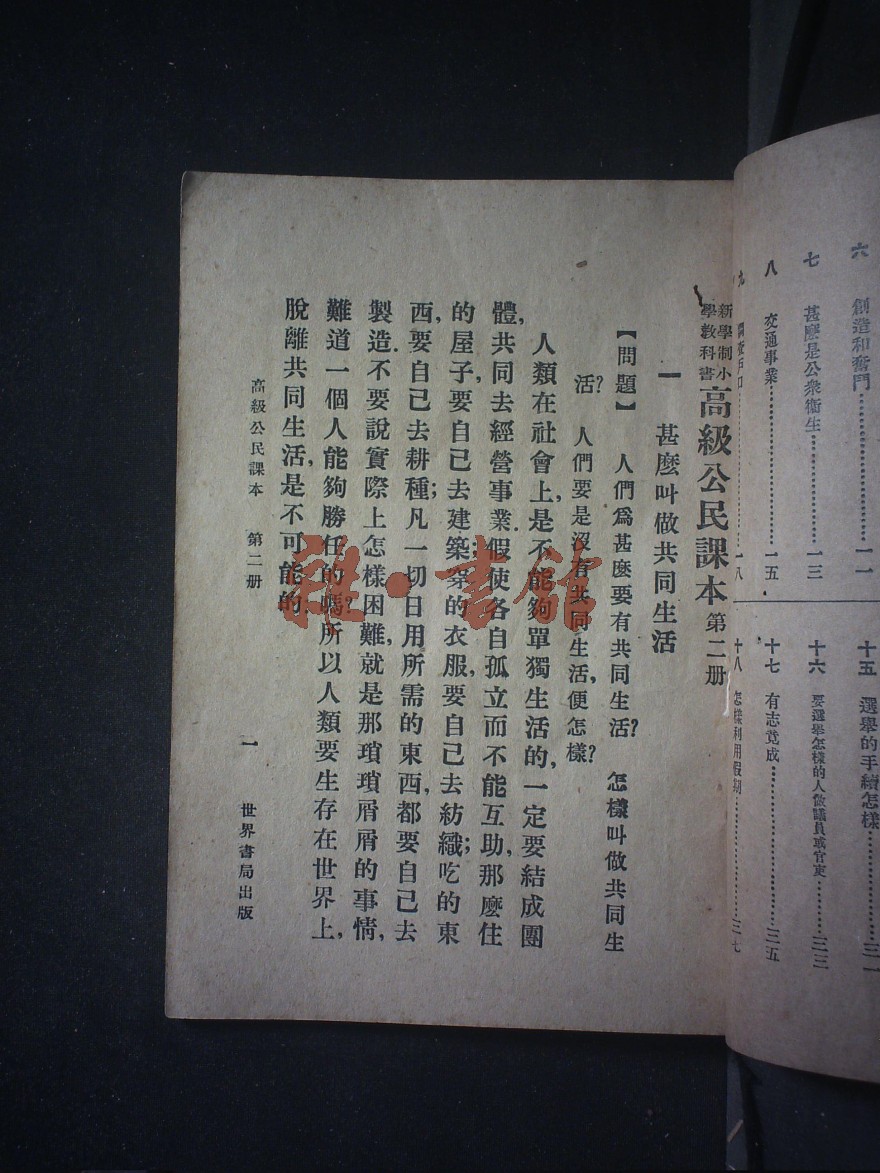 六 創造和奮鬥 一一
七 甚麼是公衆衞生 一三
八 交通事業 一五
九 調查戶口 一八
十五 選舉的手續怎樣 三一
十六 要選舉怎樣的人做議員或官吏 三三
十七 有志竟成 三五
十八 怎樣利用假期 三七
新學制小學教科書 高級公民課本 第二册
一 甚麼叫做共同生活
【問題】 人們爲甚麼要有共同生活? 怎樣叫做共同生
活? 人們要是沒有共同生活,便怎樣?
人類在社會上,是不能夠單獨生活的,一定要結成團
體,共同去經營事業.假使各自孤立而不能互助,那麼住
的屋子,要自己去建築;穿的衣服,要自己去紡織;吃的東
西,要自己去耕種;凡一切日用所需的東西,都要自己去
製造.不要說實際上怎樣困難,就是那瑣瑣屑屑的事情,
難道一個人能夠勝任的嗎?所以人類要生存在世界上,
脫離共同生活,是不可能的.
高級公民課本 第二册 一 世界書局出版
雜·書館